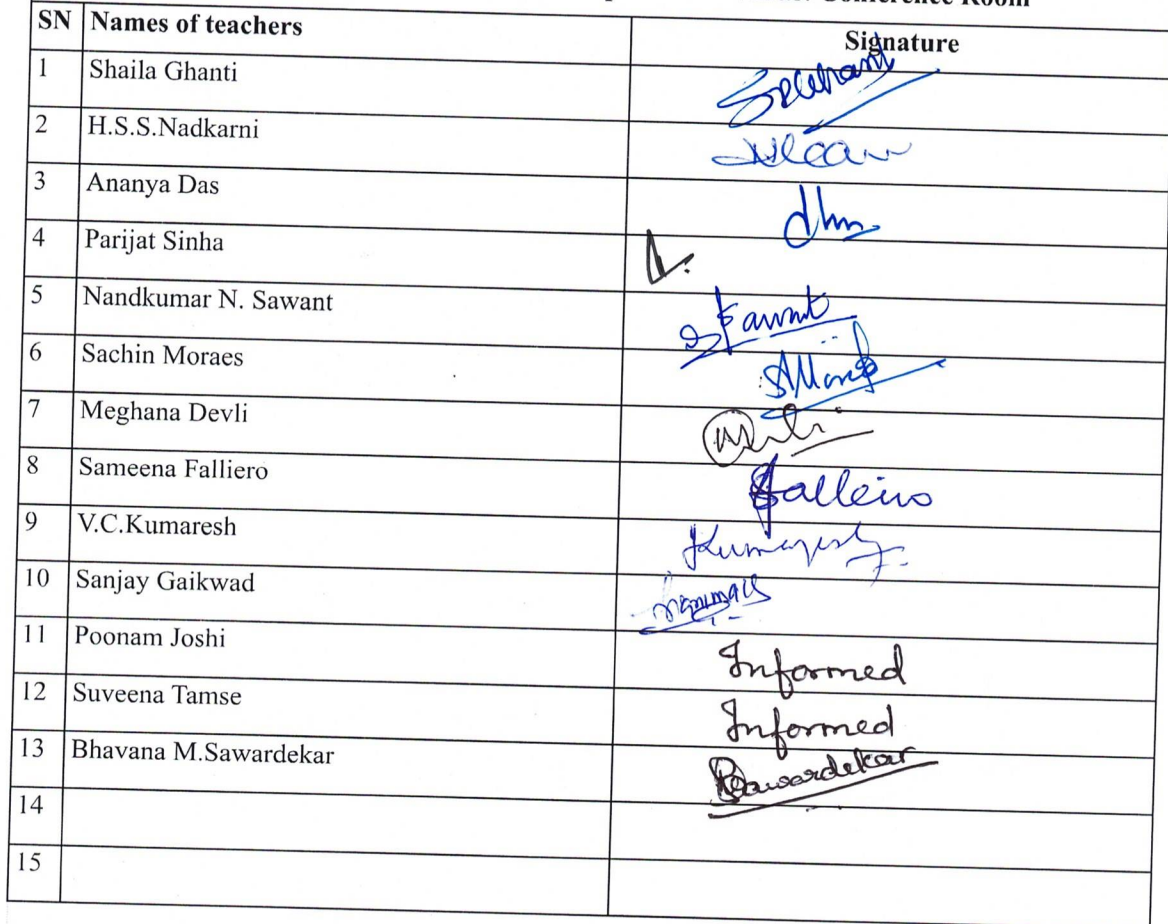 Conference Room
SN Names of teachers Signature
1 Shaila Ghanti
2 H.S.S.Nadkarni
3 Ananya Das
4 Parijat Sinha
5 Nandkumar N. Sawant Sawant
6 Sachin Moraes
7 Meghana Devli
8 Sameena Falliero Falleiro
9 V.C.Kumaresh Kumaresh
10 Sanjay Gaikwad
11 Poonam Joshi Informed
12 Suveena Tamse Informed
13 Bhavana M.Sawardekar BSawardekar
14
15